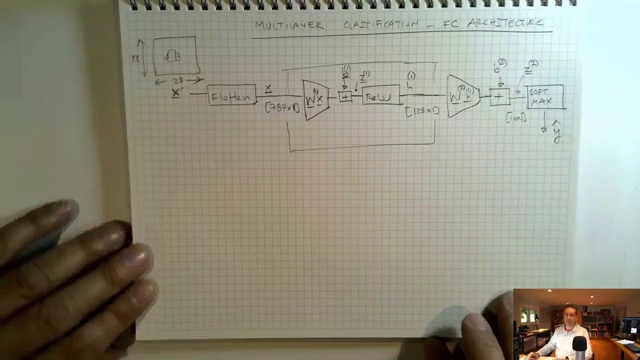 MULTILAYER CLASSIFICATION - FC ARCHITECTURE
28
28
X
Flatten
x
[784x1]
W(1)x
b(1)
+
z(1)
ReLU
h(1)
[128x1]
W(2)h(1)
b(2)
+
z(2)
[10x1]
SOFT
MAX
ŷ